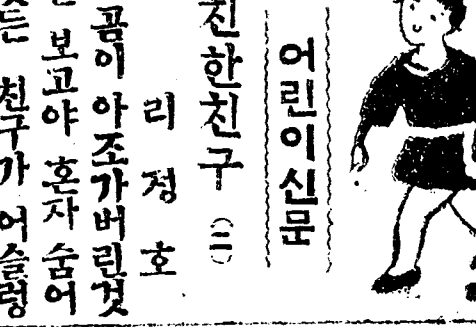 어린이신문
진한친구 (二)
리정호
곰이 아조가버린것
보고야 혼자 숨어
든 친구가 어슬렁